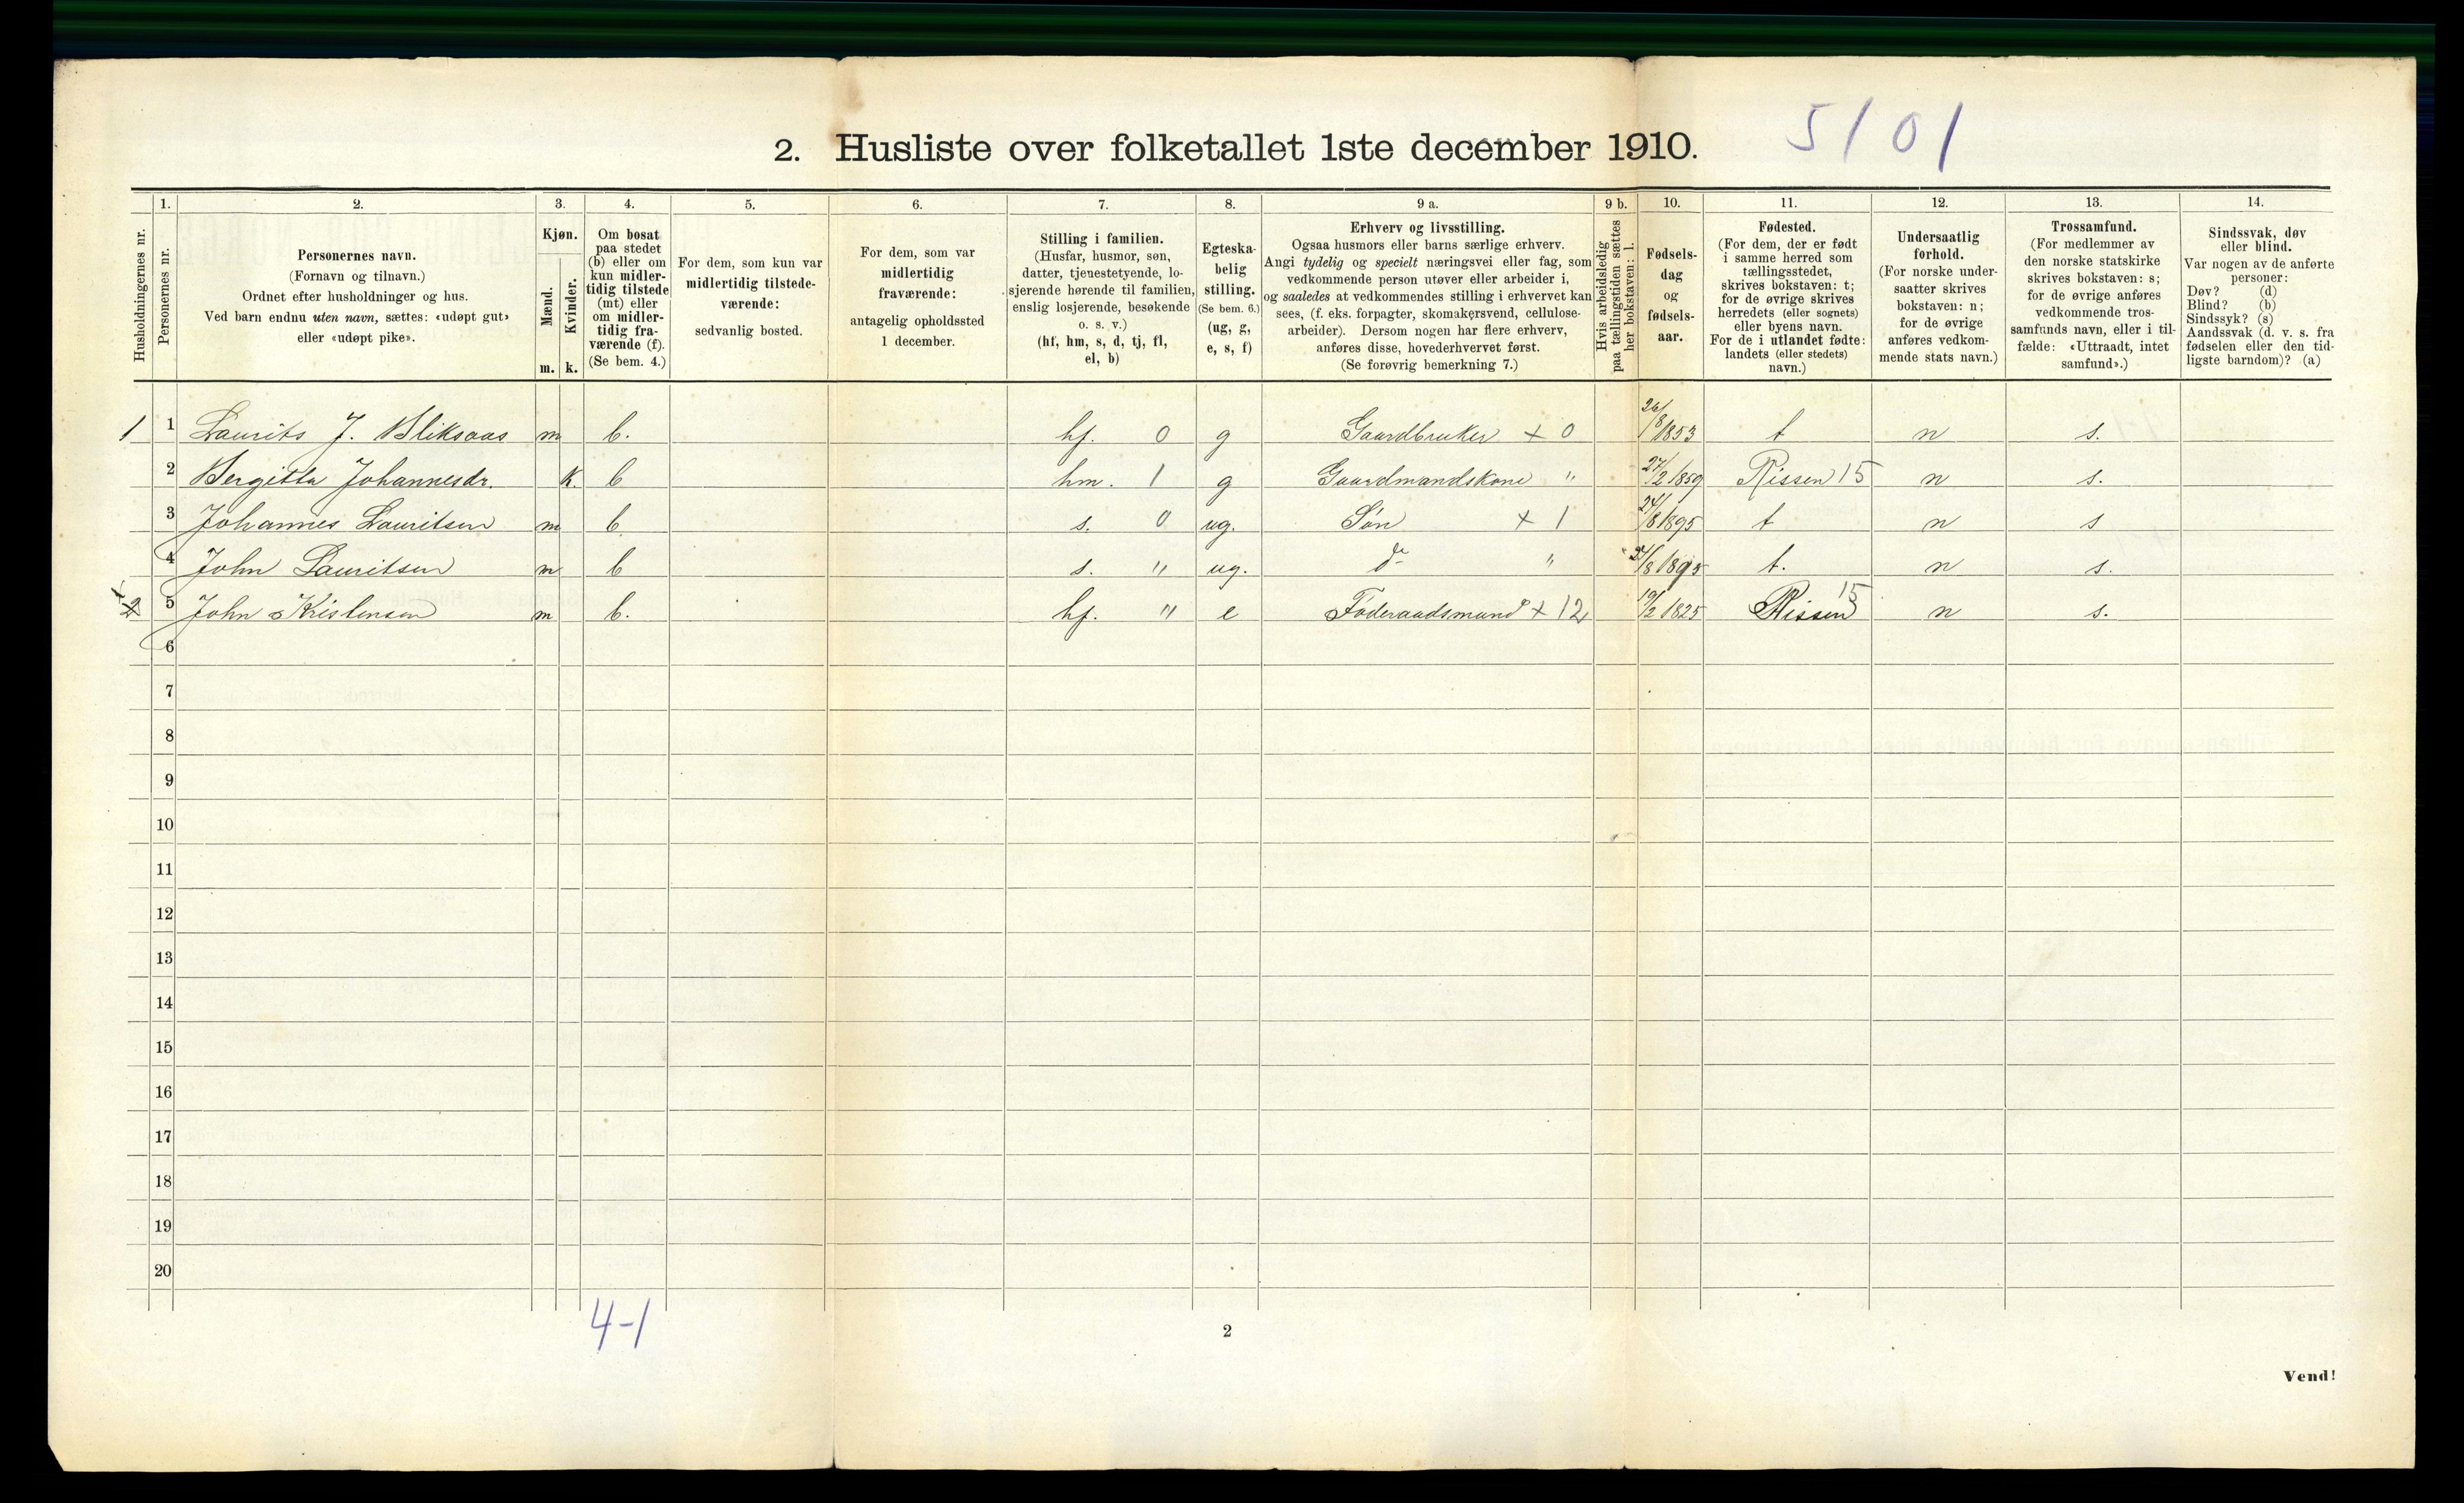 2. Husliste over folketallet 1ste december 1910. 5101
Husholdningernes nr.
1. Personernes nr.
2. Personernes navn.
(Fornavn og tilnavn.)
Ordnet efter husholdninger og hus.
Ved barn endnu uten navn, sættes: «udøpt gut»
eller «udøpt pike».
3. Kjøn.
Mænd. Kvinder.
m. k.
4. Om bosat
paa stedet
(b) eller om
kun midler-
tidig tilstede
(mt) eller
om midler-
tidig fra-
værende (f).
(Se bem. 4.)
5. For dem, som kun var
midlertidig tilstede-
værende:
sedvanlig bosted.
6. For dem, som var
midlertidig
fraværende:
antagelig opholdssted
1 december.
7. Stilling i familien.
(Husfar, husmor, søn,
datter, tjenestetyende, lo-
sjerende hørende til familien,
enslig losjerende, besøkende
o. s. v.)
(hf, hm, s, d, tj, fl,
el, b)
8. Egteska-
belig
stilling.
(Se bem. 6.)
(ug, g,
e, s, f)
9 a. Erhverv og livsstilling.
Ogsaa husmors eller barns særlige erhverv.
Angi tydelig og specielt næringsvei eller fag, som
vedkommende person utøver eller arbeider i,
og saaledes at vedkommendes stilling i erhvervet kan
sees, (f. eks. forpagter, skomakersvend, cellulose-
arbeider). Dersom nogen har flere erhverv,
anføres disse, hovederhvervet først.
(Se forøvrig bemerkning 7.)
9 b. Hvis arbeidsledig
paa tællingstiden sættes
her bokstaven: l.
10. Fødsels-
dag
og
fødsels-
aar.
11. Fødested.
(For dem, der er født
i samme herred som
tællingsstedet,
skrives bokstaven: t;
for de øvrige skrives
herredets (eller sognets)
eller byens navn.
For de i utlandet fødte:
landets (eller stedets)
navn.)
12. Undersaatlig
forhold.
(For norske under-
saatter skrives
bokstaven: n;
for de øvrige
anføres vedkom-
mende stats navn.)
13. Trossamfund.
(For medlemmer av
den norske statskirke
skrives bokstaven: s;
for de øvrige anføres
vedkommende tros-
samfunds navn, eller i til-
fælde: «Uttraadt, intet
samfund».)
14. Sindssvak, døv
eller blind.
Var nogen av de anførte
personer:
Døv? (d)
Blind? (b)
Sindssyk? (s)
Aandssvak (d. v. s. fra
fødselen eller den tid-
ligste barndom)? (a)
1 1 Laurits J. Bliksaas m b. hf. 0 g Gaardbruker + 0 26/8 1853 t n s.
2 Bergitta Johannesdr. k. b hm. 1 g Gaardmandskone " 27/2 1859 Rissen 15 n s.
3 Johannes Lauritsen m b. s. 0 ug. Søn + 1 24/8 1895 t n s
4 John Lauritsen m b s. " ug. do " 24/8 1895 t. n s.
2 5 John Kristensen m b. hf. " e Føderaadsmand + 12 19/2 1825 Rissen 15 n s.
6
7
8
9
10
11
12
13
14
15
16
17
18
19
20
4-1
2
Vend!